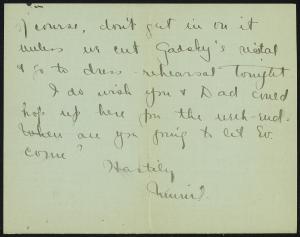 of course, don't get in on it
unless we cut Gadsky's recital
& go to dress-rehearsal tonight
I do wish you & Dad could
hop up here for the week-end.
When are you going to let Ev.
come?
Hastily